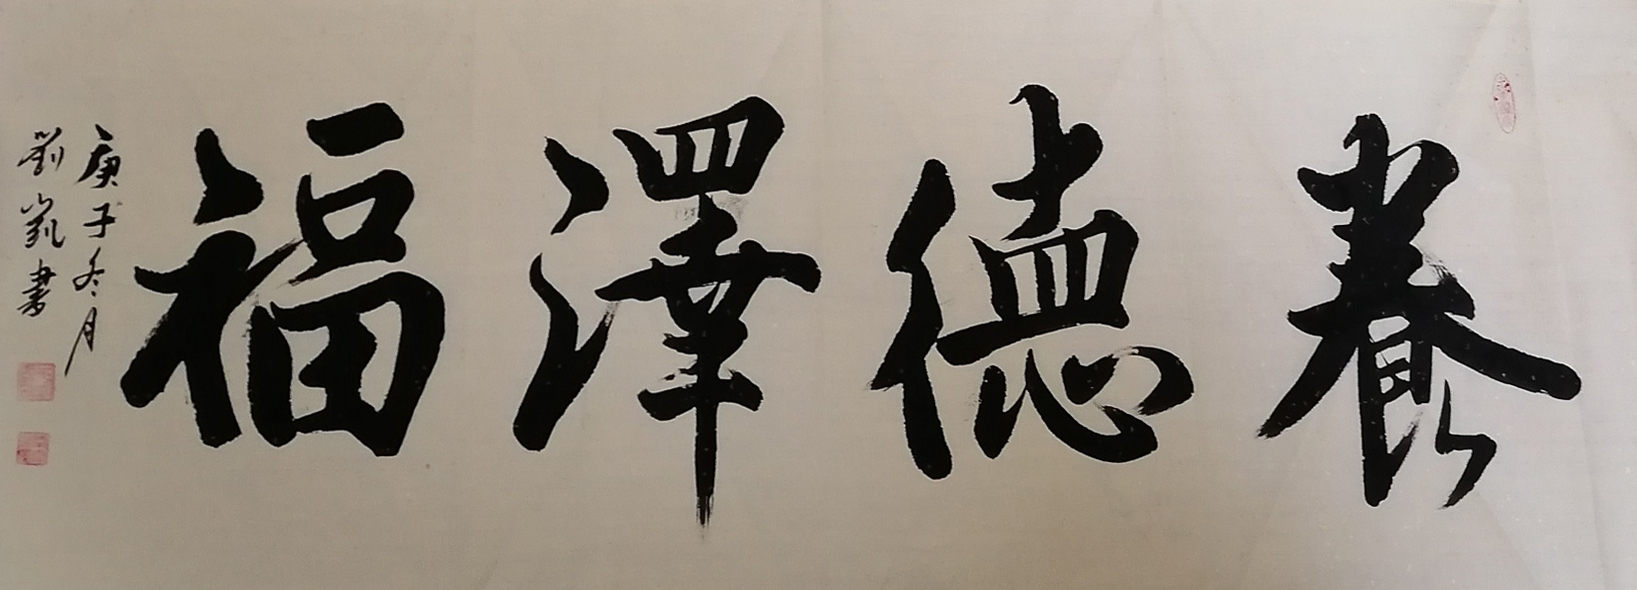 養德澤福
庚子冬月
劉凱書